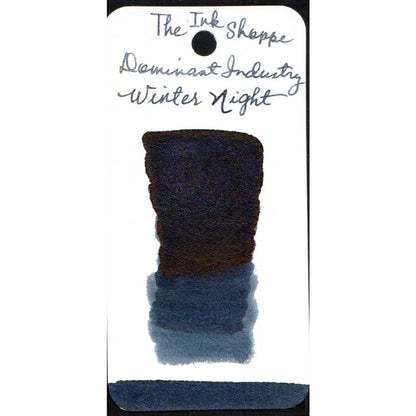 The Ink Shoppe
Dominant Industry
Winter Night